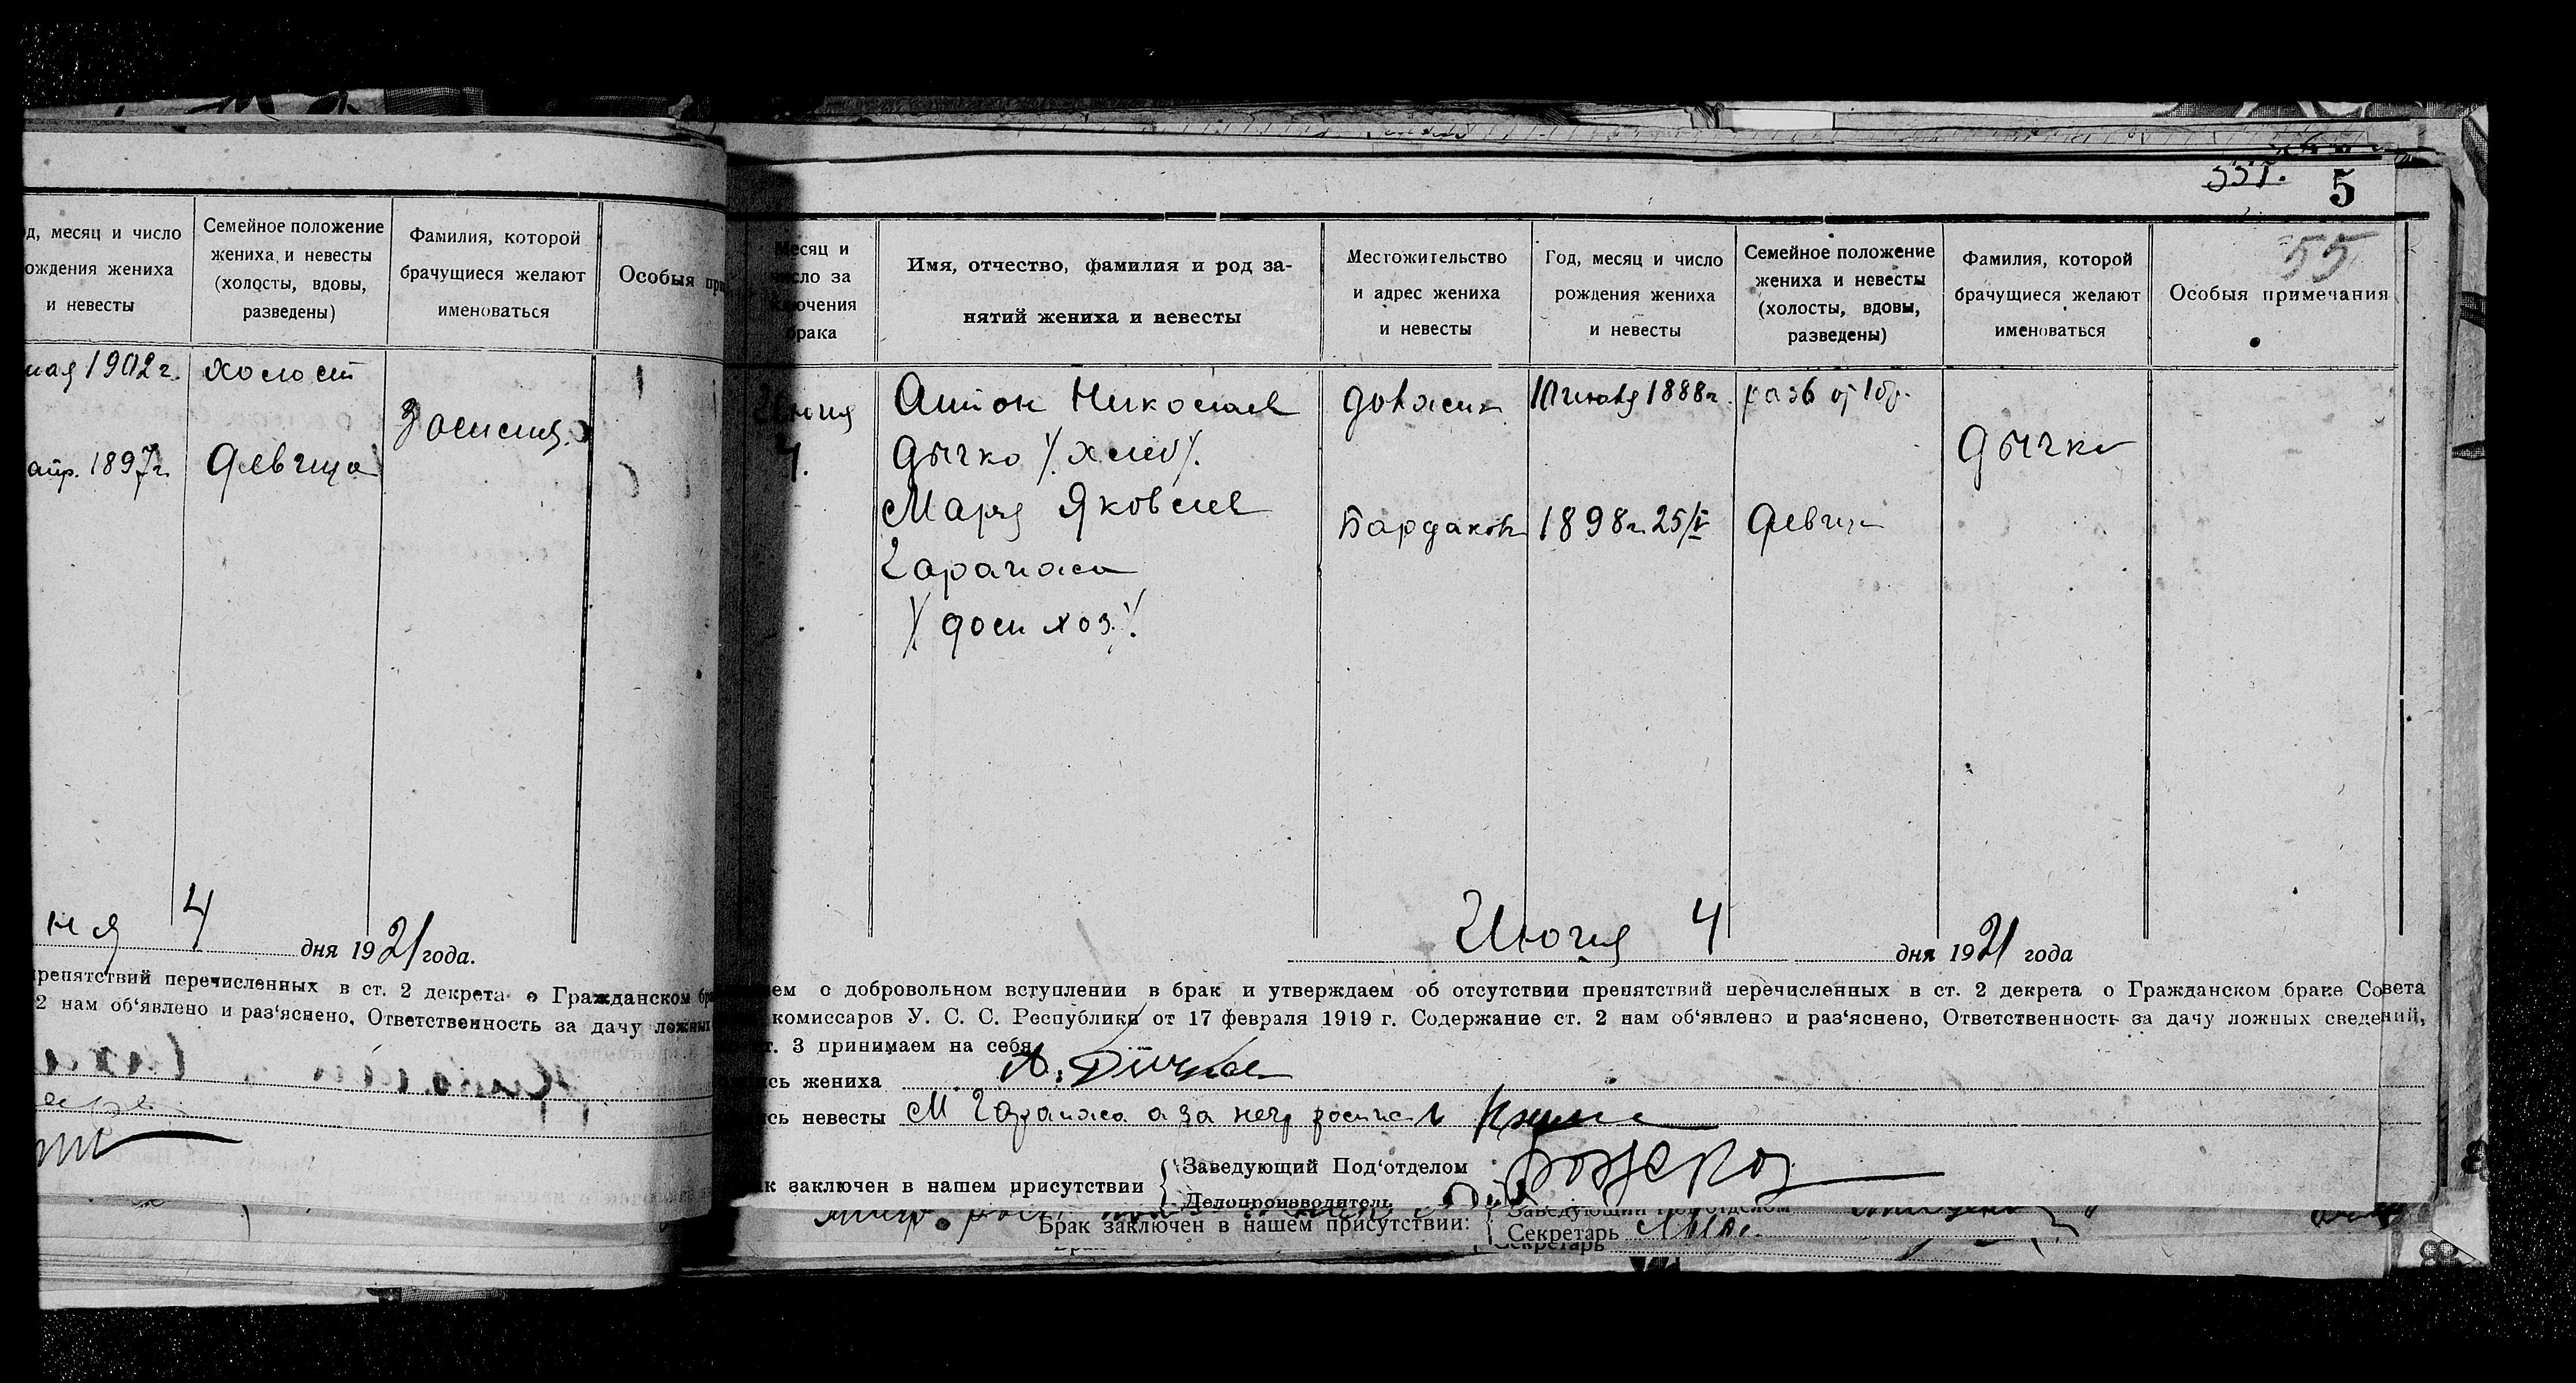 д, месяц и число
ождения жениха
и невесты
Семейное положение
жениха и невесты
(холосты, вдовы,
разведены)
Фамилия, которой
брачущиеся желают
именоваться
Особыя при
мая 1902 г.
холост
апр. 1897 г.
девица
ня 4 дня 1921 года.
репятствий перечисленных в ст. 2 декрета о Гражданском бра
2 нам об‘явлено и раз‘яснено, Ответственность за дачу ложны
551.
5
55
Месяц и
число за
ключения
брака
Имя, отчество, фамилия и род за-
нятий жениха и невесты
Местожительство
и адрес жениха
и невесты
Год, месяц и число
рождения жениха
и невесты
Семейное положение
жениха и невесты
(холосты, вдовы,
разведены)
Фамилия, которой
брачущиеся желают
именоваться
Особыя примечания
Июня
4.
Антон Николаев
Дычко /хлеб/.
Мария Яковлев
/дом хоз./
1888 г.
1898 г. 25/V
разв
девиц
Дычко
Июня 4 дня 1921 года
ем о добровольном вступлении в брак и утверждаем об отсутствии препятствий перечисленных в ст. 2 декрета о Гражданском браке Совета
комиссаров У. С. С. Республики от 17 февраля 1919 г. Содержание ст. 2 нам об‘явлено и раз‘яснено, Ответственность за дачу ложных сведений,
т. 3 принимаем на себя
сь жениха А. Дичко
сь невесты М а за нею
к заключен в нашем присутствии
Заведующий Под‘отделом
Делопроизводитель
Брак заключен в нашем присутствии:
Заведующий Под‘отделом
Секретарь
Секретарь